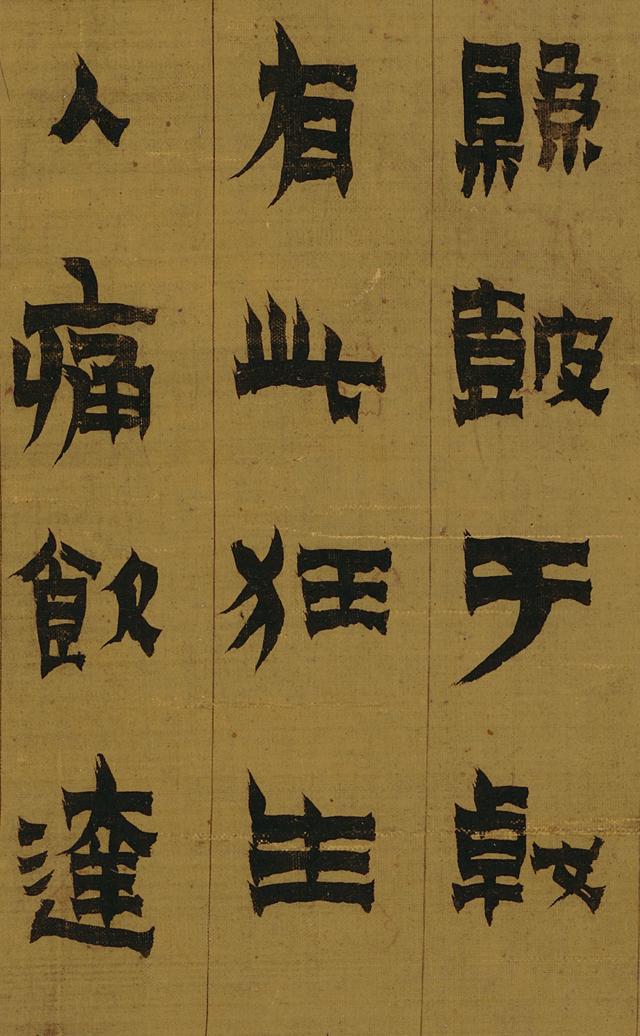 縣皷于
有此狂生
人痛飲達